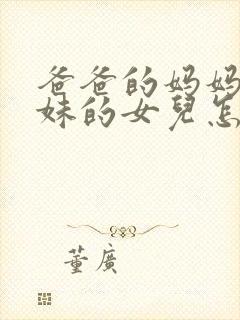 爸爸的妈妈
妹的女兒怎
董廣